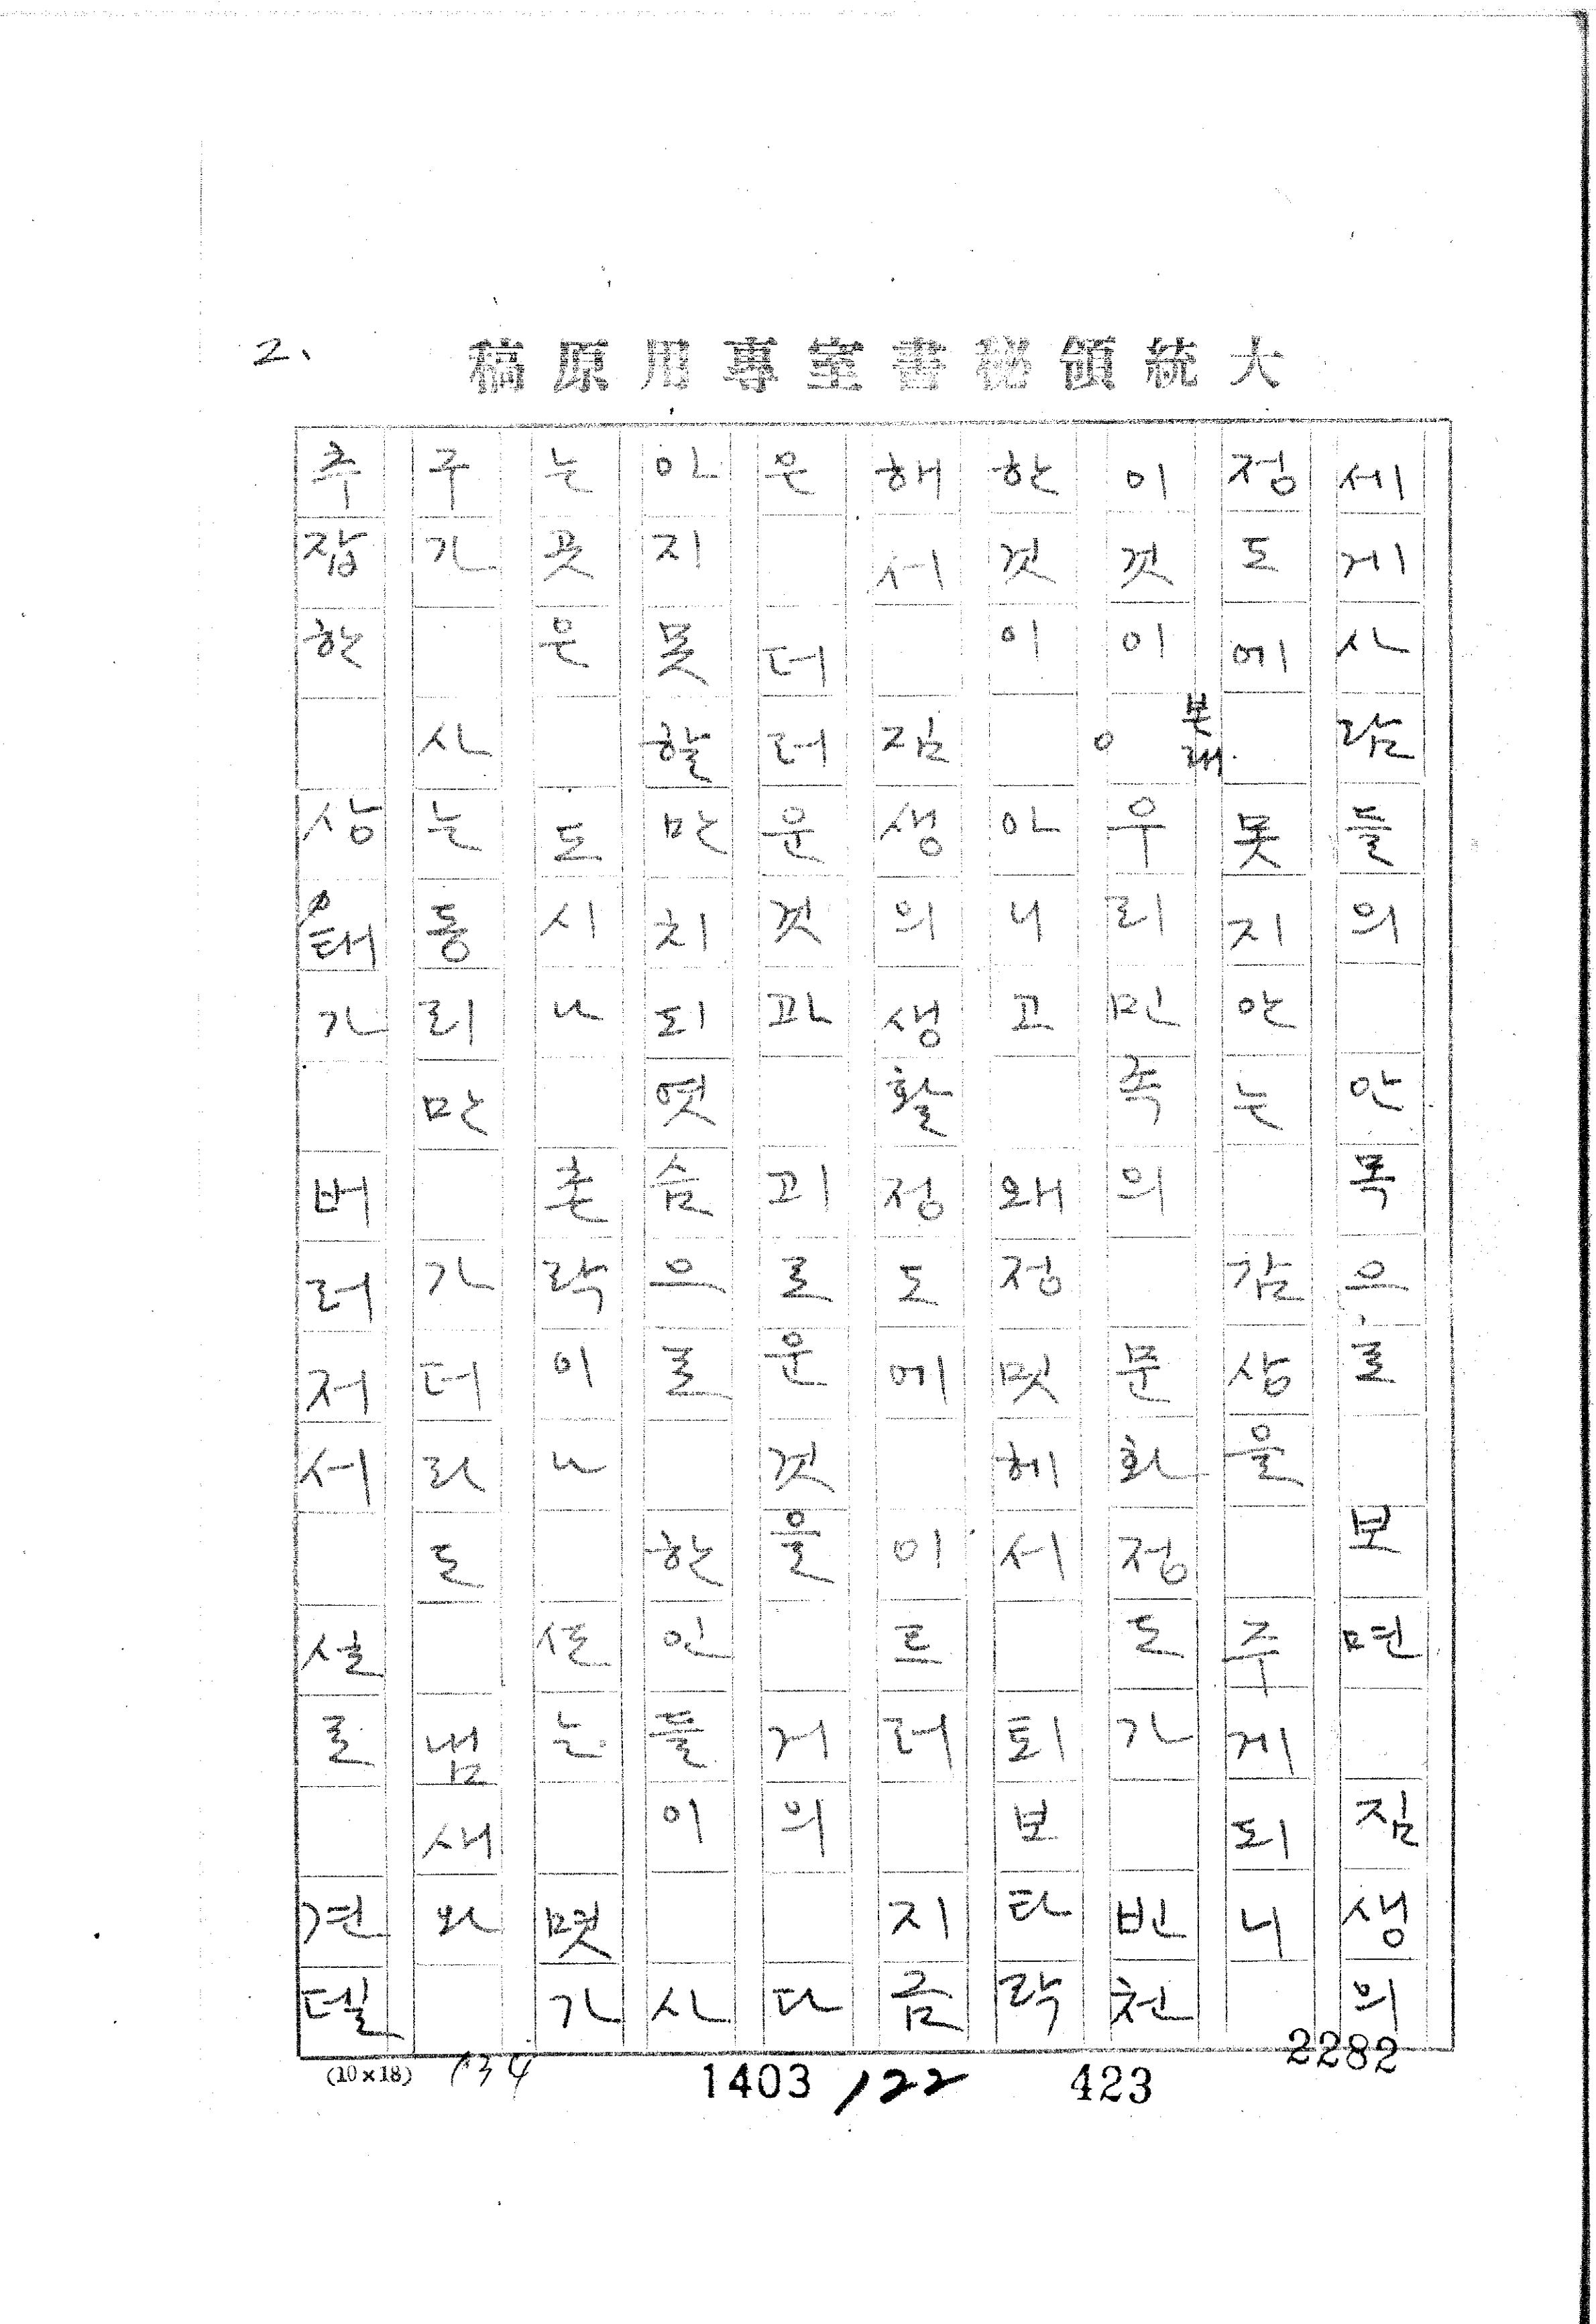 2.
大統領秘書室專用原稿
세게사람들의 안목으로 보면 짐생의
정도에 못지안는 감상을 주게되니
본래
이것이 우리민족의 문화정도가 빈천
한것이 아니고 왜정밋헤서 퇴보타락
해서 짐생의생활정도에 이르러 지금
은 더러운것과 괴로운것을 거의 다
아지못할만치되엿슴으로 한인들이 사
는곳은 도시나 촌락이나 선는 몃가
구가 사는동리만 가더라도 냄새와
추잡한 상태가 버러저서 설로 견델
(10×18)
134
1403
122
423
2282